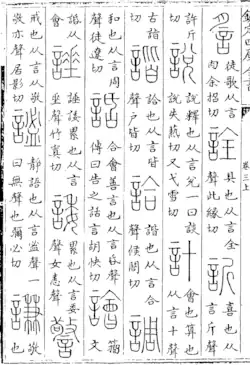 欽定四庫全書 卷三上
䚻 徒歌也从言肉余招切 詮 具也从言全聲此緣切 訢 喜也从言斤聲
許斤切 說 說釋也从言兌一曰談說失爇切又弋雪切 計 會也算也从言十聲
古詣切 諧 詥也从言皆聲戶皆切 詥 諧也从言合聲候閤切 調
和也从言周聲徒遼切 話 合會善言也从言𠯑聲傳曰告之話言胡快切 譮 籀文
話从會 諈 諈諉累也从言垂聲竹寘切 諉 累也从言委聲女恚切 警
戒也从言从敬敬亦聲居影切 謐 靜語也从言盇聲一曰無聲也彌必切 謙 敬也